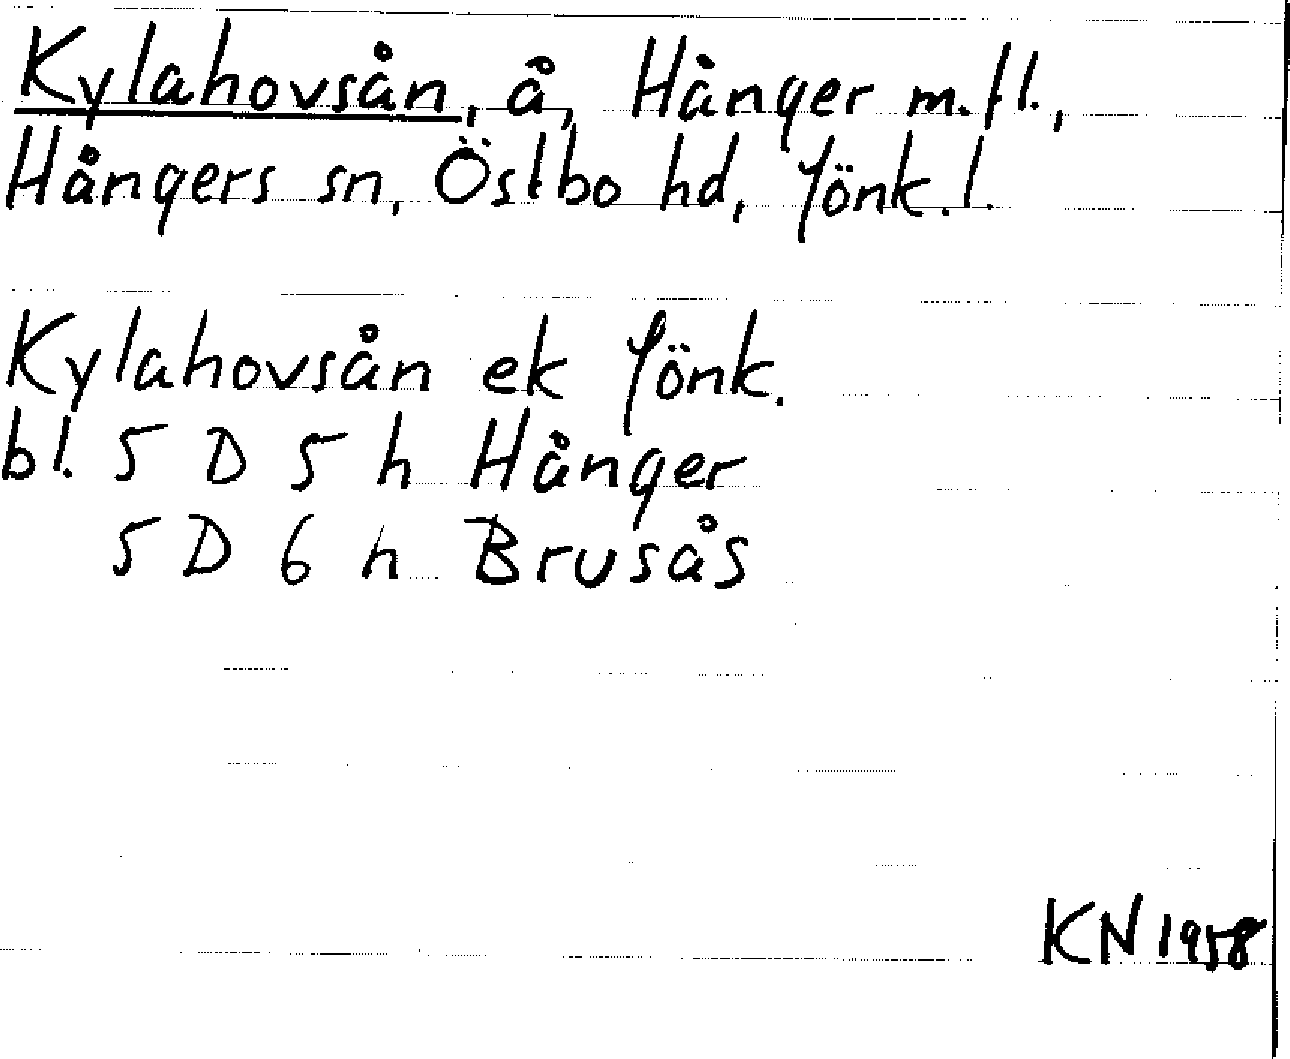 Kylahovsån, å, Hånger m.fl.,
Hångers sn, Östbo hd, Jönk.l.
Kylahovsån ek Jönk.
bl. 5 D 5 h Hånger
5 D 6 h Brusås
KN 1958